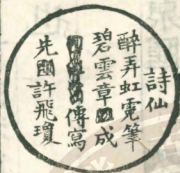 詩仙
醉弄虹霓筆
碧雲章成
傳寫
先國許飛瓊